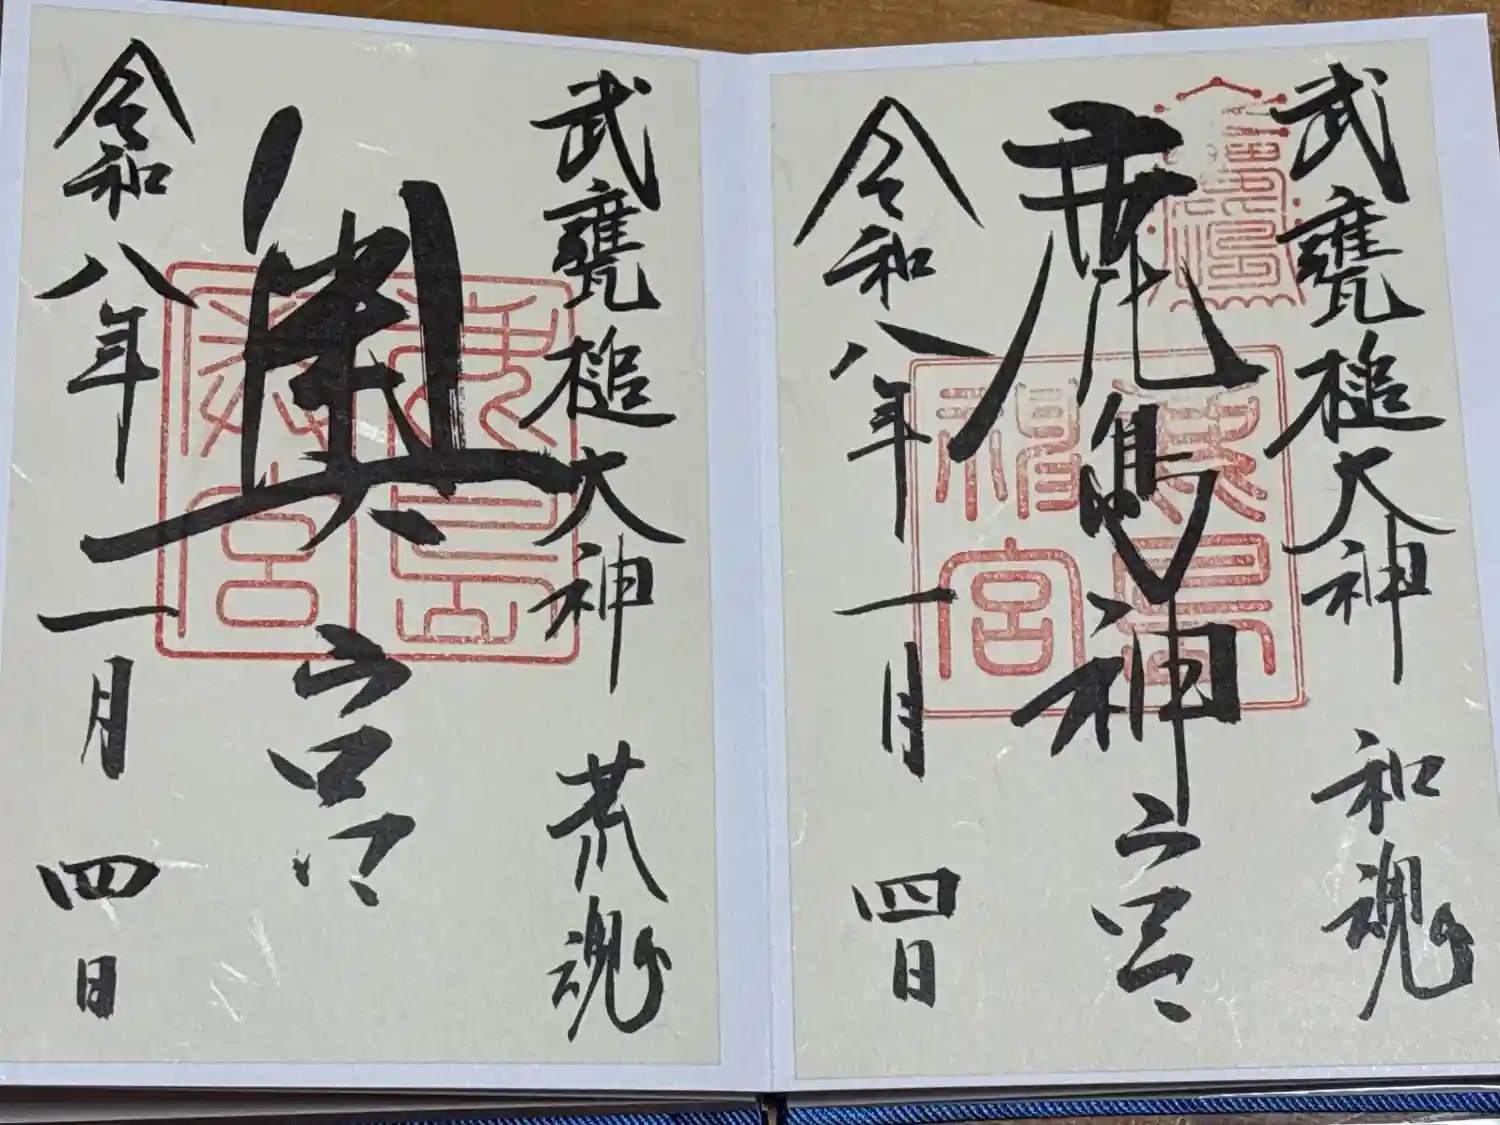 武甕槌大神 和魂
鹿島神宮
令和八年一月四日
鹿島神宮
武甕槌大神 荒魂
奥宮
令和八年一月四日
鹿島奥宮